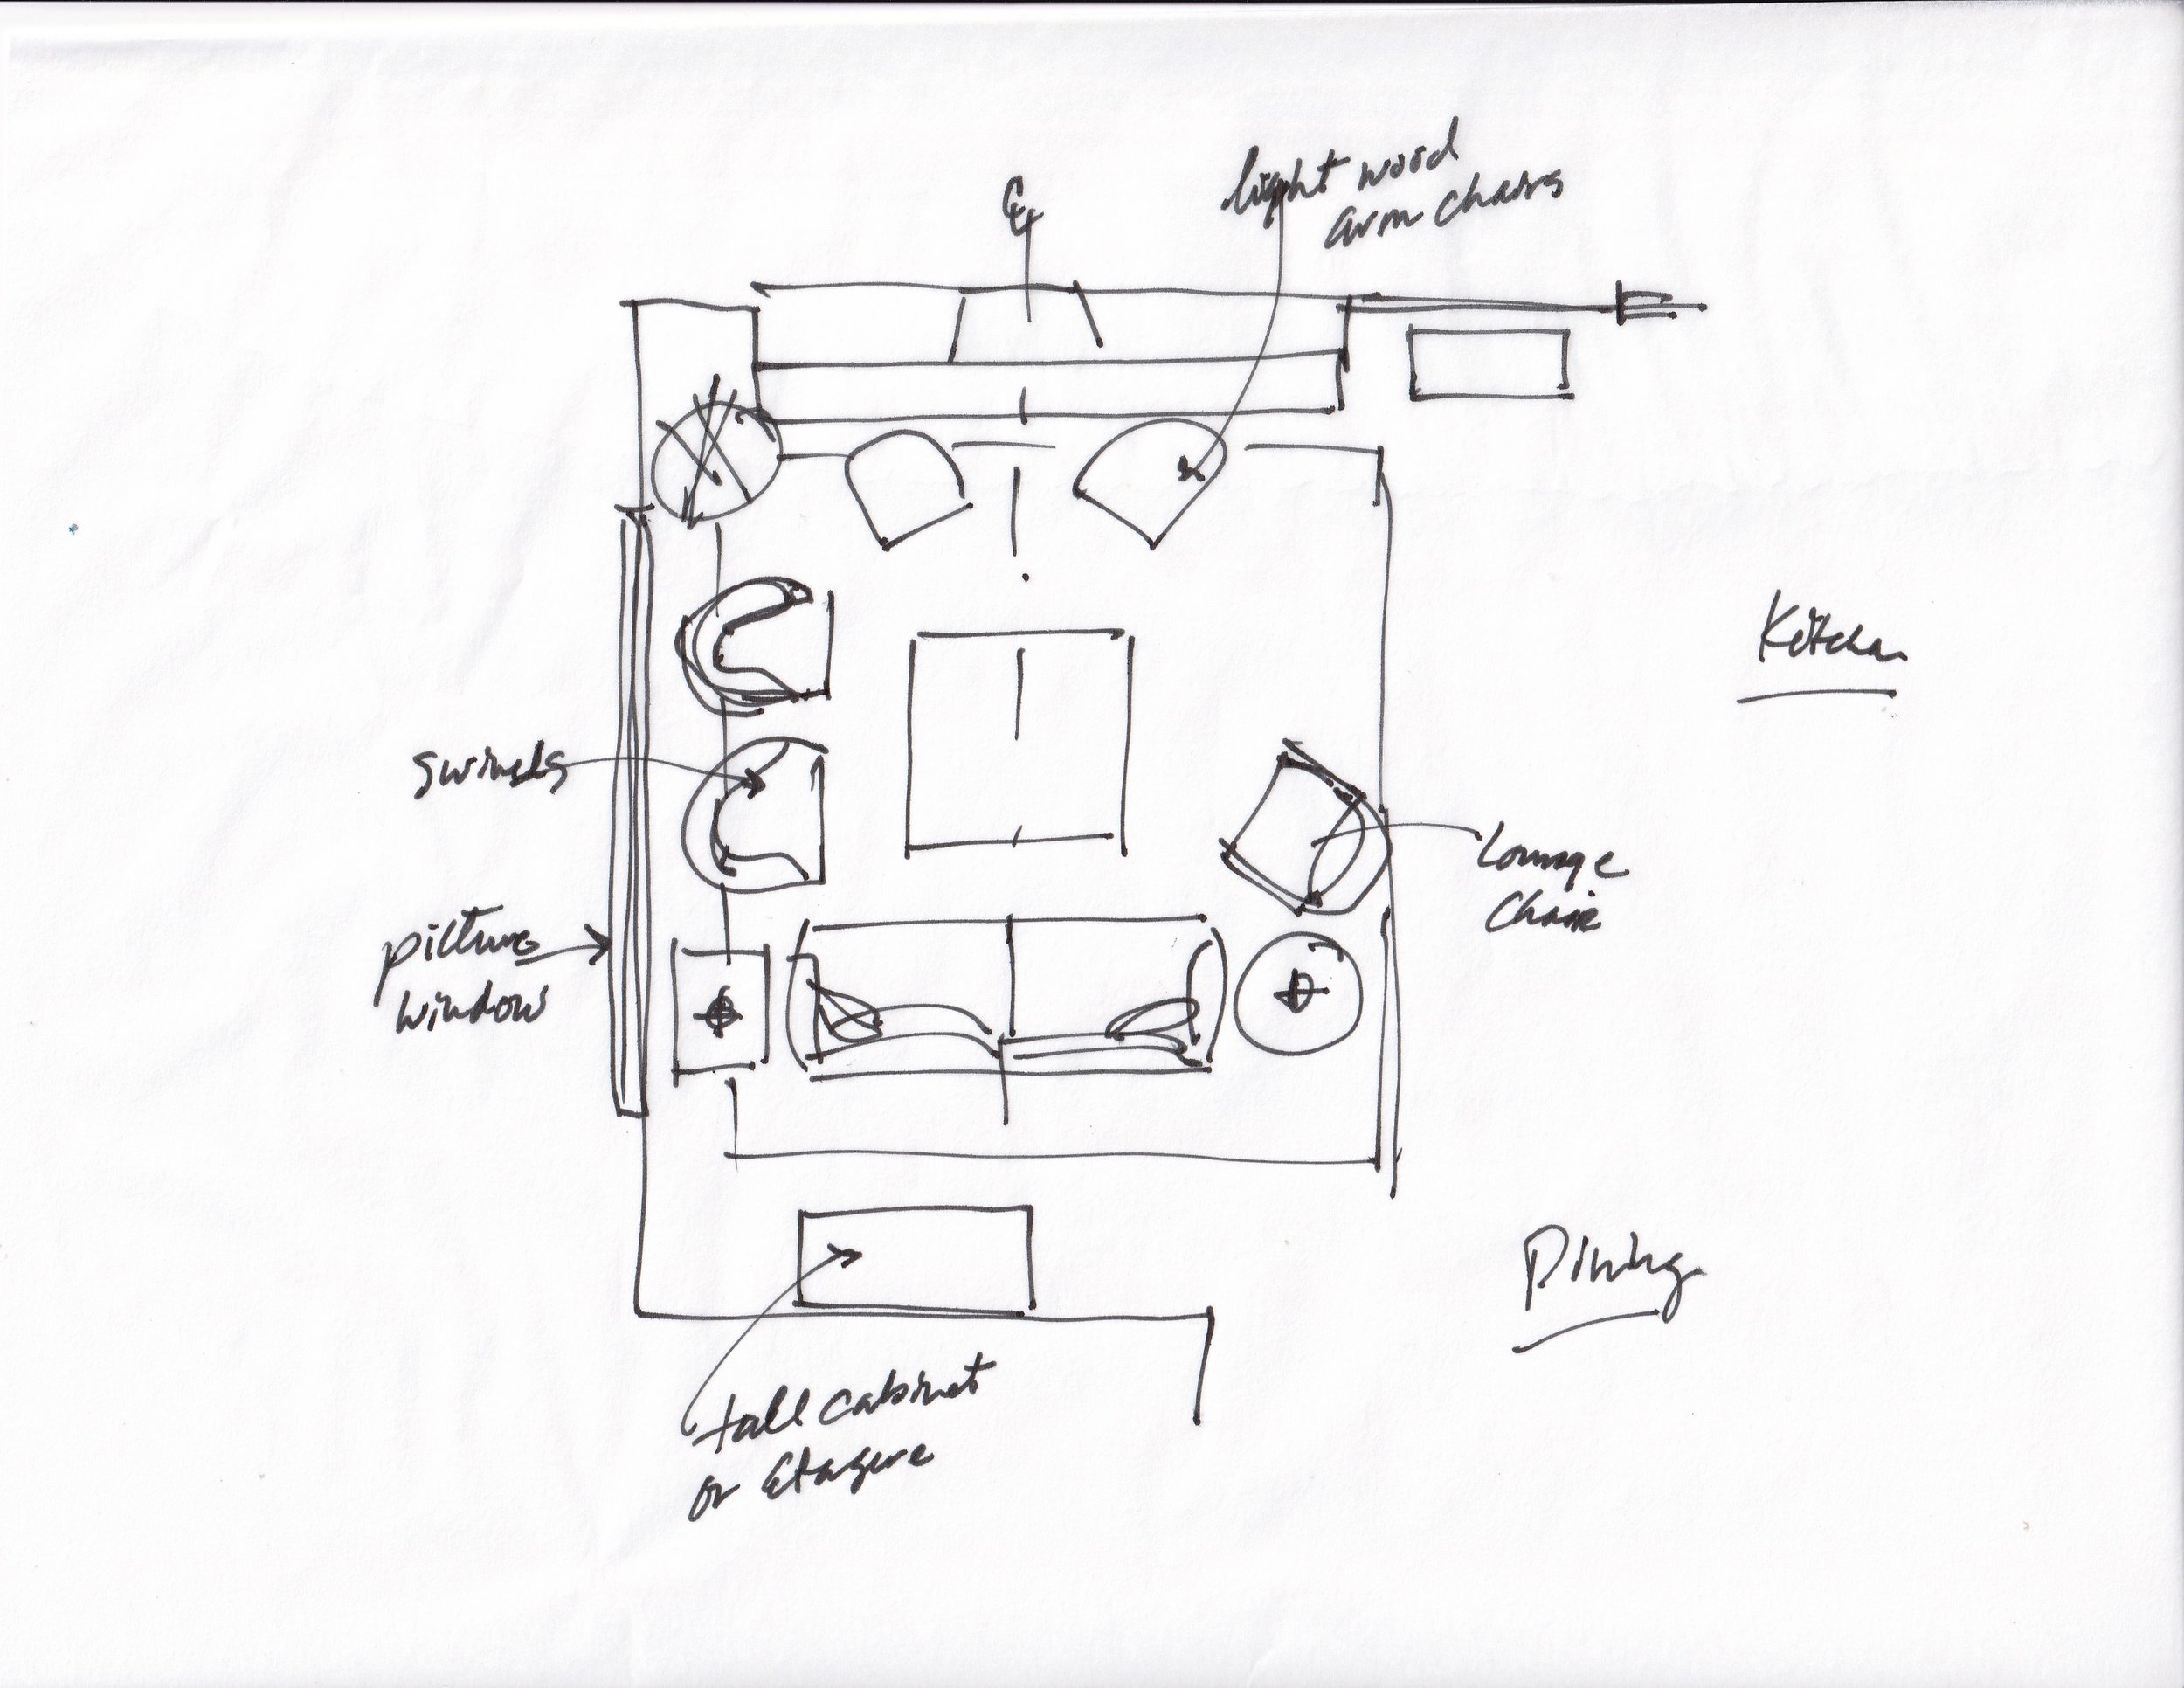 ℄
light wood
arm chairs
Kitchen
swivels
Lounge
Chair
picture
window
Dining
tall cabinet
or Etagere